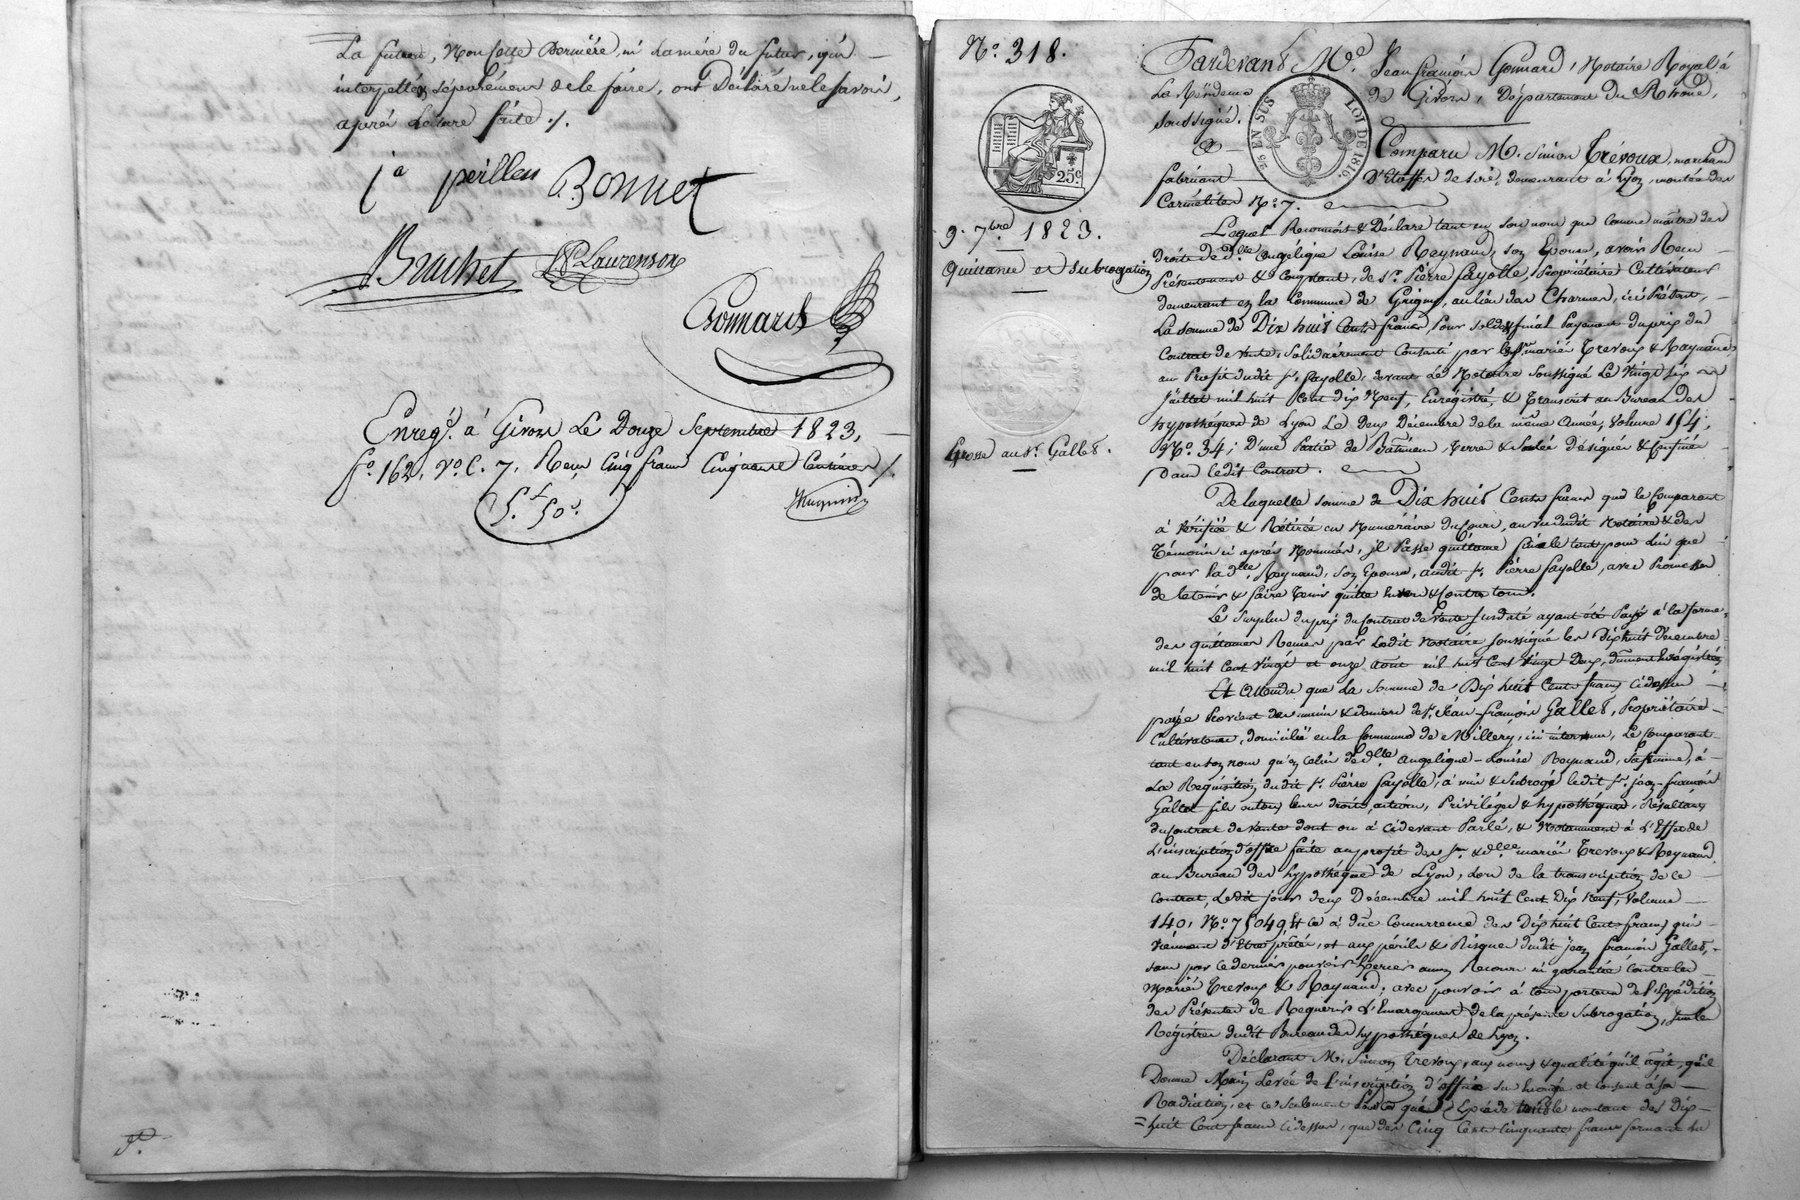 La future, non cette dernière, ni la mère du futur, qui
interpellés séparément de le faire, ont Déclaré ne le savoir,
après Lecture faite ./.
Ja perillen Bonnet
Bruchet Laurenson
Gonnard
Enregé. à Givors Le Douze Septembre 1823,
fo. 162, vo. C. 7, Reçu Cinq francs Cinquante Centimes ./.
5.f 50c.
No. 318.
25c
9. 7bre 1823.
Quittance et subrogation
Grosse au sr. Gallet.
Pardevant Me. Jean françois Gonnard, Notaire Royal à
La Résidence de Givors, Département du Rhône,
soussigné.
25 EN SUS LOI DE 1816
Comparu M. Simon Trévoux, marchand
fabricant D'Etoffes de soie, demeurant à Lyon, montée des
Carmélites No. 7.
Lequel Reconnoit & Déclare tant en son nom que comme maître des
droits de dlle angélique Louise Reynaud, son Epouse, avoir Reçu
Présentement & Comptant, de sr. Pierre fayolle, Propriétaire Cultivateur
demeurant en la Commune de Grigny, au lieu des Charmes, ici Présent,
La somme de Dix huit Cents francs, Pour solde & final Payement du prix du
Contrat de vente, solidairement Consenti par les mariés Trevoux & Raynaud,
au Profit dudit sr. fayolle, devant Le Notaire soussigné Le vingt six
Juillet mil huit Cent dix Neuf, Enregistré, & Transcrit au Bureau des
hypothèques de Lyon Le deux Décembre de la même Année, Volume 154,
No. 34; D'une Partie de Bâtiment, Terre & désignés & Confinés
Dans ledit Contrat.
De laquelle somme de Dix huit Cents francs que le Comparant
à vérifiée & Retirée en Numéraire du Cours, au vu dudit Notaire & des
Témoins ci après Nommés, il Passe quittance finale tant pour lui que
pour la dlle. Reynaud, son Epouse, audit sr. Pierre fayolle, avec Promesse
de le tenir & faire Tenir quitte envers & Contre tous.
Le Surplus du prix du Contrat de vente susdaté ayant été Payé à la forme
des quittances Reçues par Ledit Notaire soussigné les Dix huit Décembre
mil huit Cent Vingt et onze août mil huit Cent Vingt Deux, dument Enrégistrées
Et Attendu que La Somme de Dix huit Cents francs Cidessus
payée Provient des mains & deniers de sr. Jean-françois Gallet, Propriétaire
Cultivateur, domicilié en la Commune de Millery, ici intervenu, Le Comparant
tant en son nom qu'en celui de dlle angelique-Louise Reynaud, sa femme, à
La Réquisition dudit sr. Pierre fayolle, à mis & Subrogé ledit sr. Jean-françois
Gallet en tous leurs droits, actions, Priviléges & hypothèques, Résultans
du Contrat de vente dont on à Cidevant Parlé, & Notamment à L'Effet de
L'inscription d'office faite au profit des sr. & dlle mariés Trevoux & Reynaud,
au Bureau des hypothèques de Lyon, Lors de la transcription de ce
Contrat, Ledit jour deux Décembre mil huit Cent Dix Neuf, Volume
140, No. 75049 Et Ce à due Concurrence des Dix huit Cents francs qui
viennent d'Etre prêtés, et aux périls & Risques dudit jean françois Gallet,
sans par ce dernier pouvoir Exercer aucun Recours ni garantie contre les
Mariés Trevoux & Raynaud, avec pouvoir à tout porteur de l'Expédition
des Présentes de Requérir L'Emargement de la présente Subrogation, sur les
Registres dudit Bureau des hypothèques de Lyon.
Déclarant M. Simon Trevoux, aux noms & qualité qu'il agit, qu'il
Donne Main Levée de l'inscription d'office su Enoncée et Consent à sa
Radiation, et ce seulement le montant des Dix
huit Cents francs Cidessus, que des Cinq Cents Cinquante francs formant le